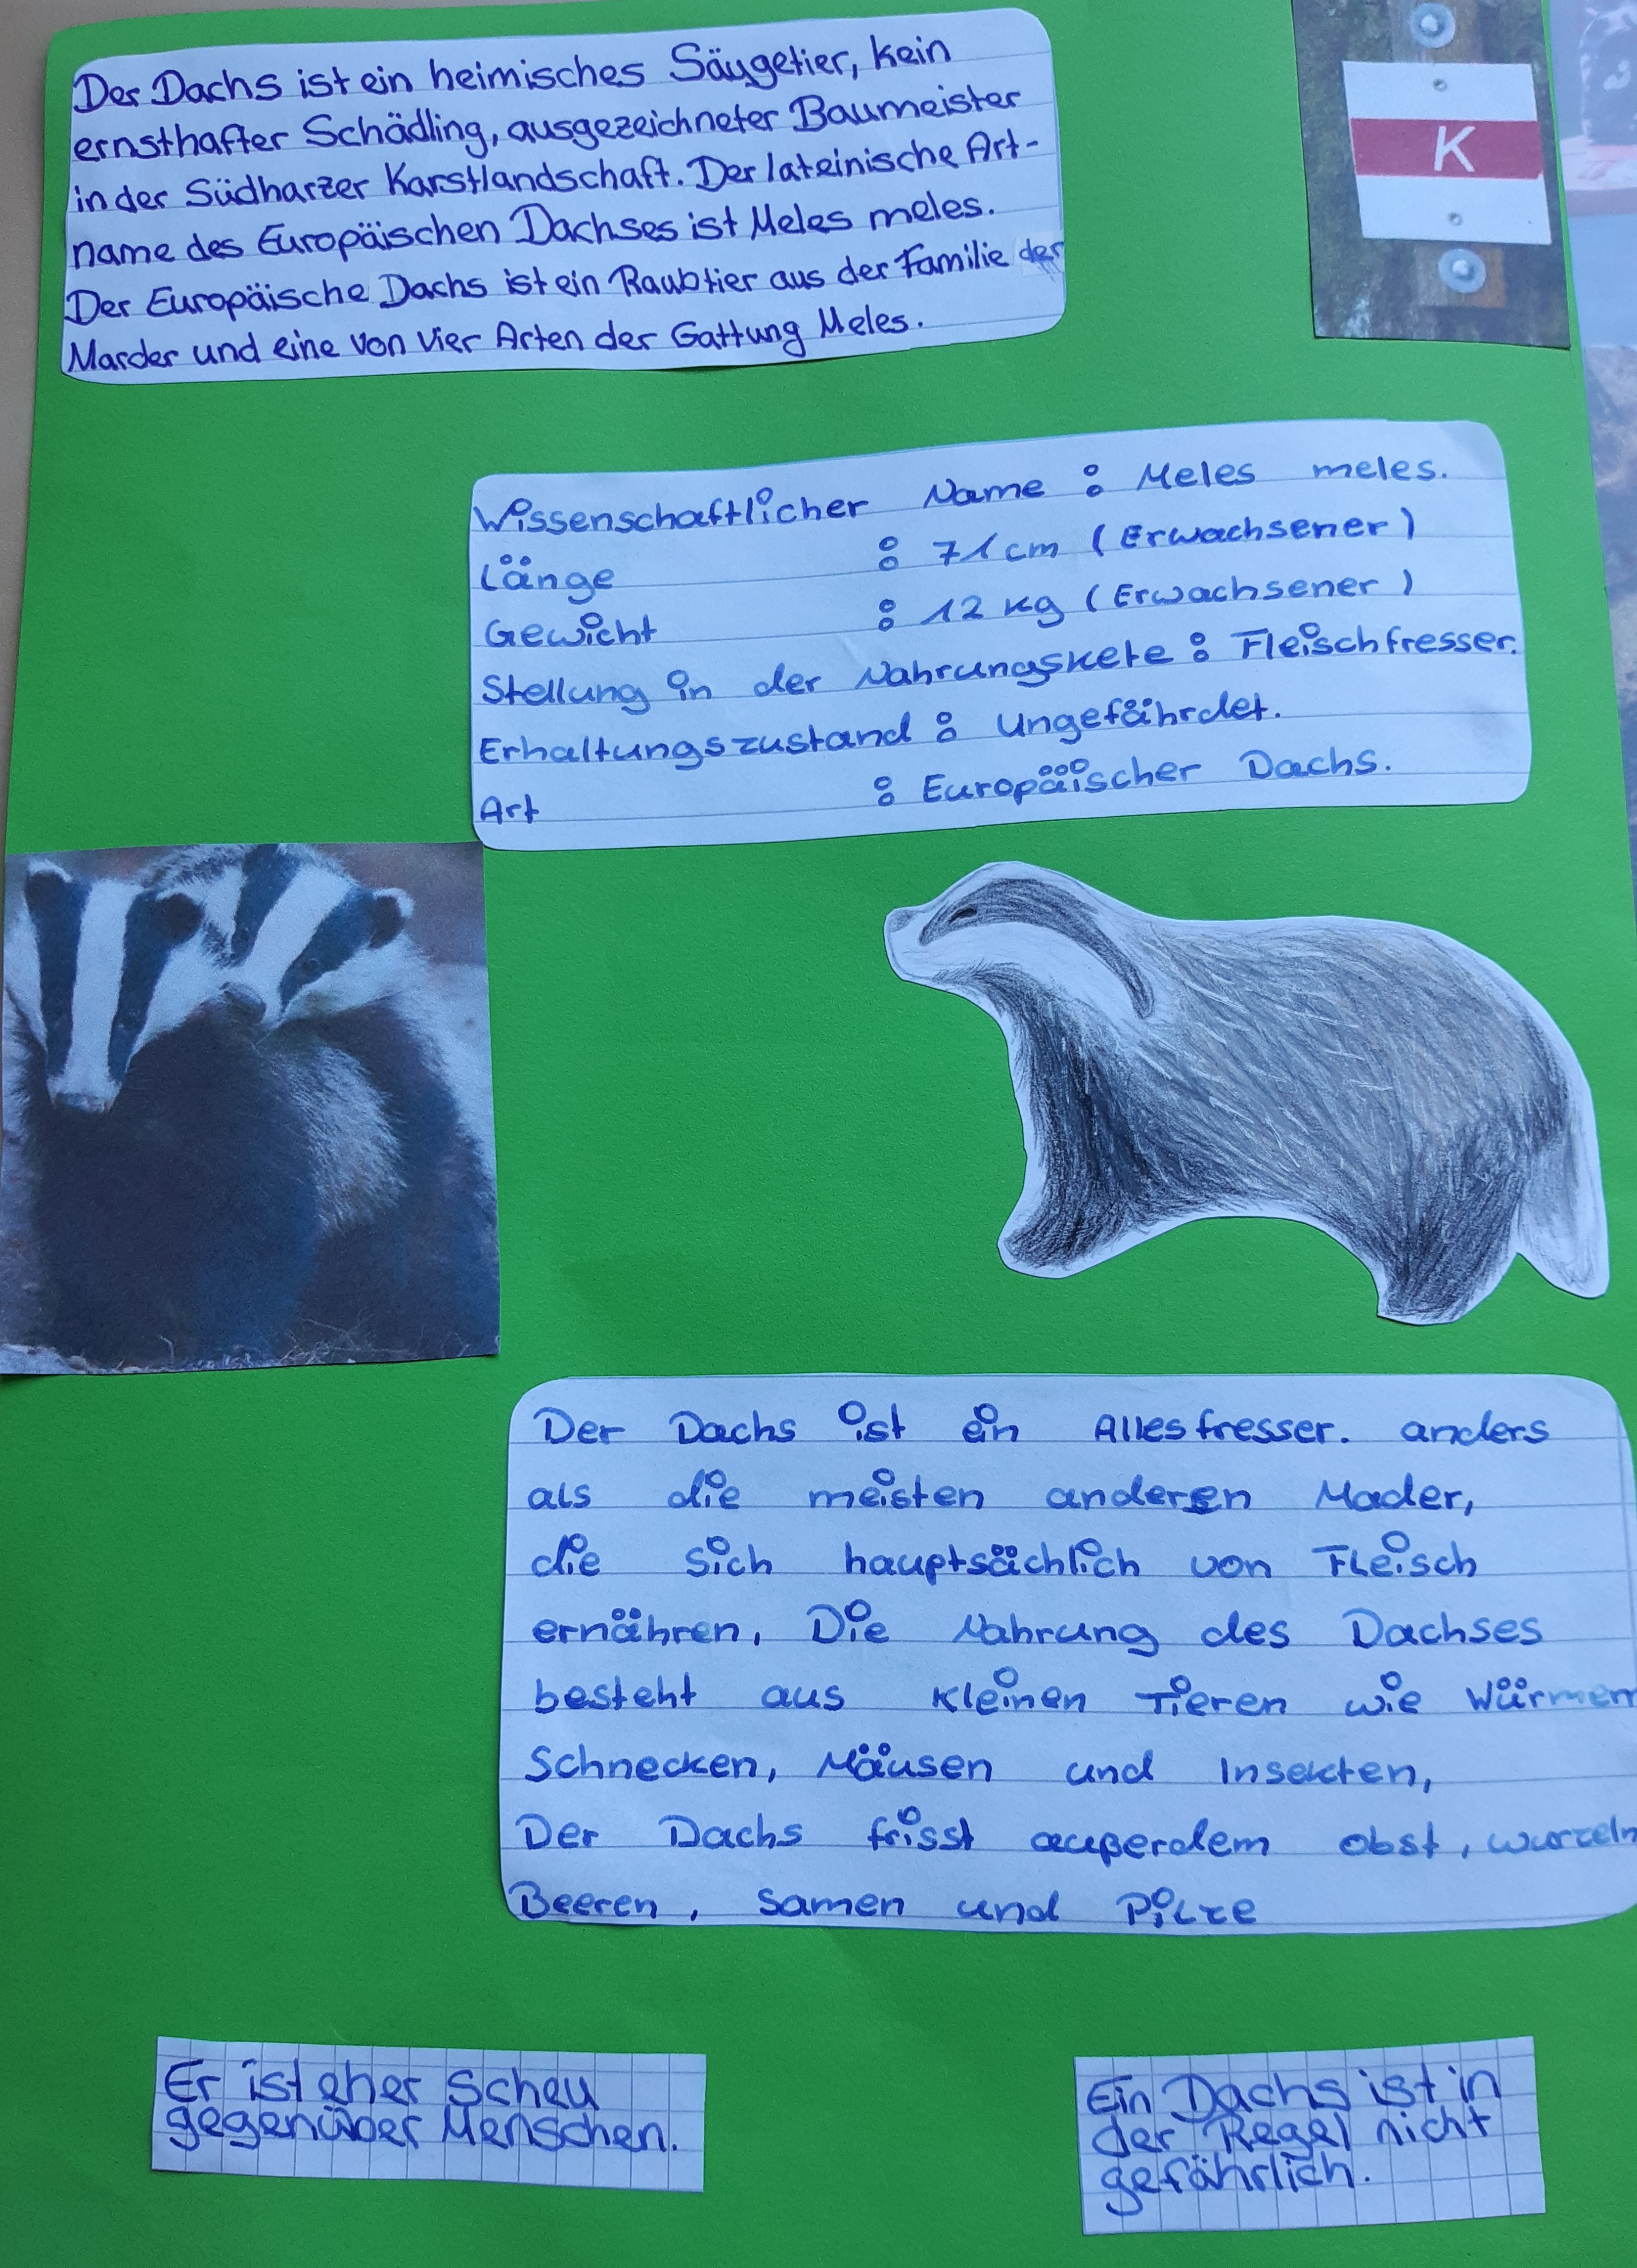 Der Dachs ist ein heimisches Säugetier, kein
ernsthafter Schädling, ausgezeichneter Baumeister
in der Südharzer Karstlandschaft. Der lateinische Art-
name des Europäischen Dachses ist Meles meles.
Der Europäische Dachs ist ein Raubtier aus der Familie der
Marder und eine von vier Arten der Gattung Meles.
K
Wissenschaftlicher Name : Meles meles.
Länge : 71 cm (Erwachsener)
Gewicht : 12 kg (Erwachsener)
Stellung in der Nahrungskete : Fleischfresser.
Erhaltungszustand : Ungefährdet.
Art : Europäischer Dachs.
Der Dachs ist ein Allesfresser. anders
als die meisten anderen Mader,
die sich hauptsächlich von Fleisch
ernähren, Die Nahrung des Dachses
besteht aus kleinen Tieren wie Würmern
Schnecken, Mäusen und Insekten,
Der Dachs frisst außerdem obst, wurzeln
Beeren, Samen und Pilze
Er ist eher scheu
gegenüber Menschen.
Ein Dachs ist in
der Regel nicht
gefährlich.